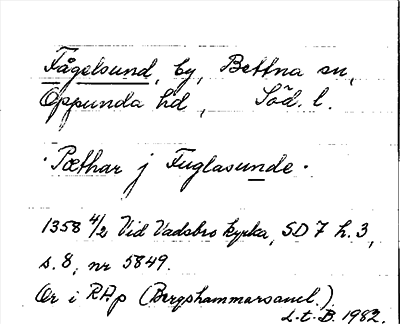 Fågelsund, by, Bettna sn,
Oppunda hd, Söd. l.
· Pæthar j Fuglasunde ·
1358 4/2 Vid Vadsbro kyrka, SD 7 h. 3,
s. 8, nr 5849.
Or i RAp (Bergshammarsaml.).
L.t.B. 1982.